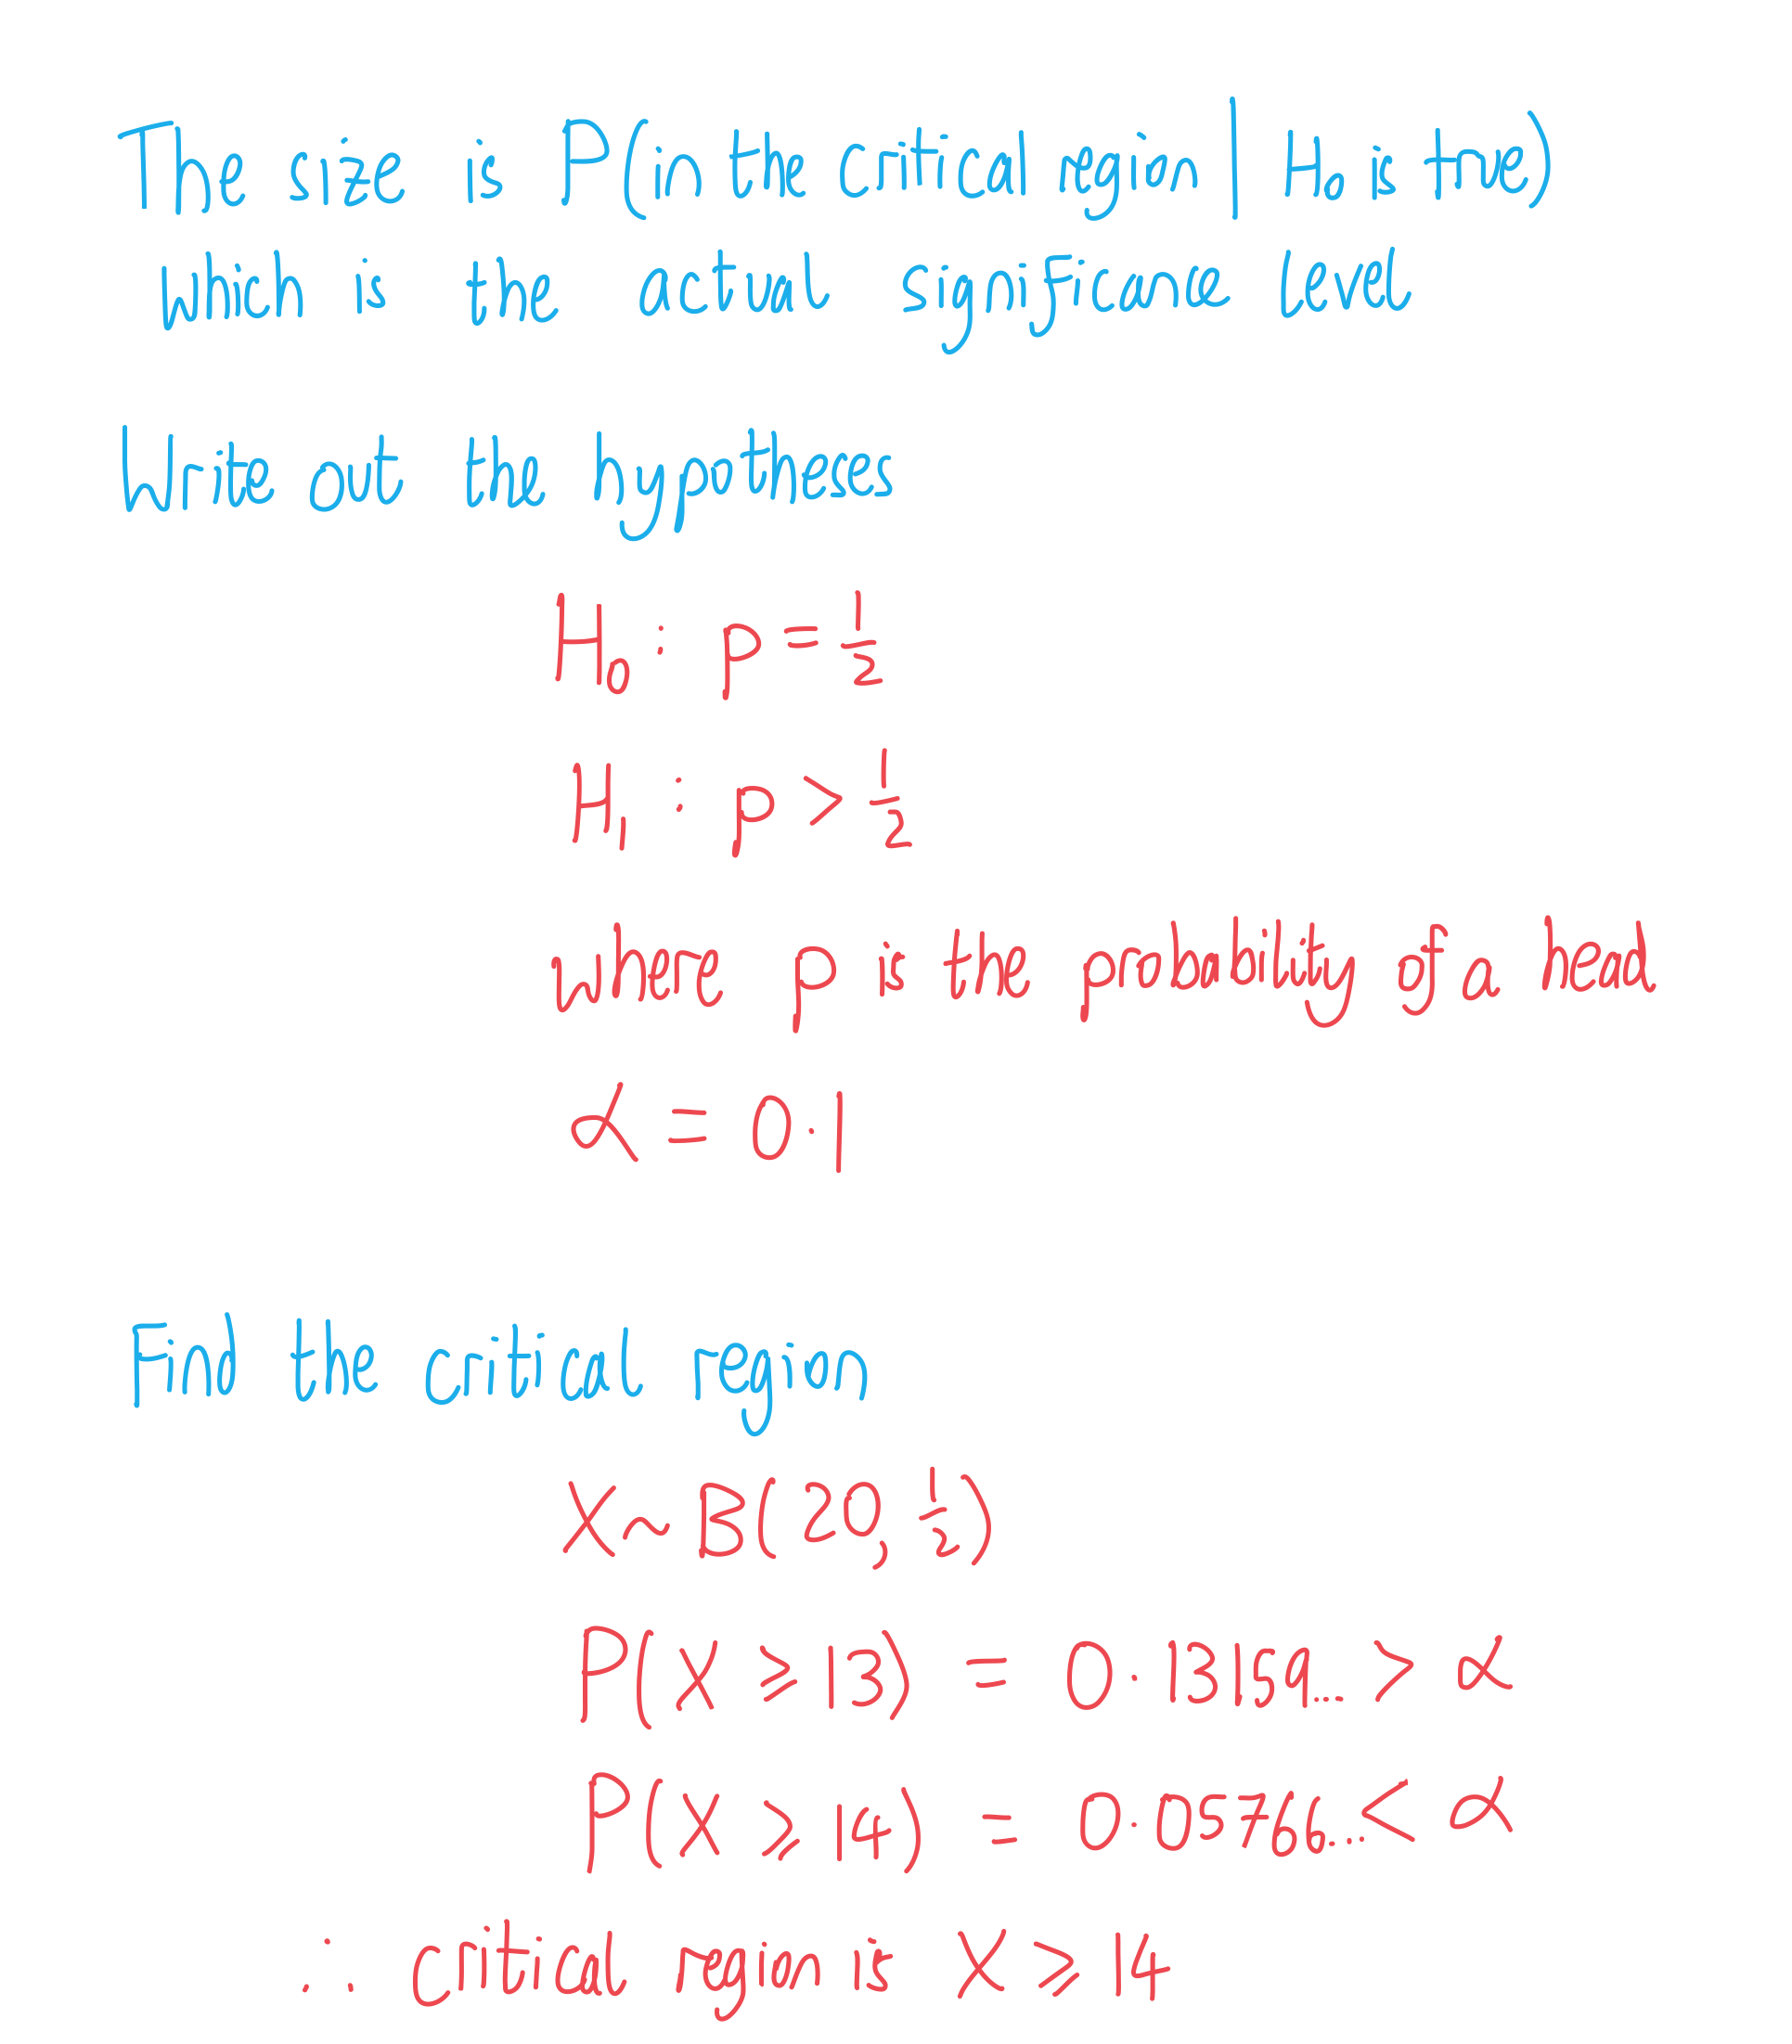 The size is P(in the critical region | H₀ is true)
which is the actual significance level
Write out the hypotheses
H₀ : p = 1/2
H₁ : p > 1/2
where p is the probability of a head
α = 0.1
Find the critical region
X ~ B(20, 1/2)
P(X ⩾ 13) = 0.13159... > α
P(X ⩾ 14) = 0.05766... < α
∴ critical region is X ⩾ 14